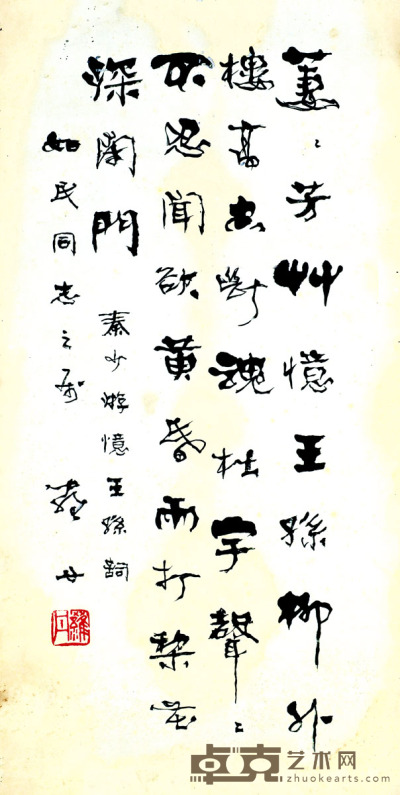 萋〻芳艸憶王孫柳外
樓高空斷魂杜宇聲〻
不忍聞欲黃昏雨打棃花
深閉門 秦少游憶王孫詞
如民同志之属 羅丹
羅丹
卓克艺术网
zhuokearts.com